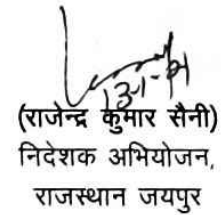 (राजेन्द्र कुमार सैनी)
निदेशक अभियोजन,
राजस्थान जयपुर